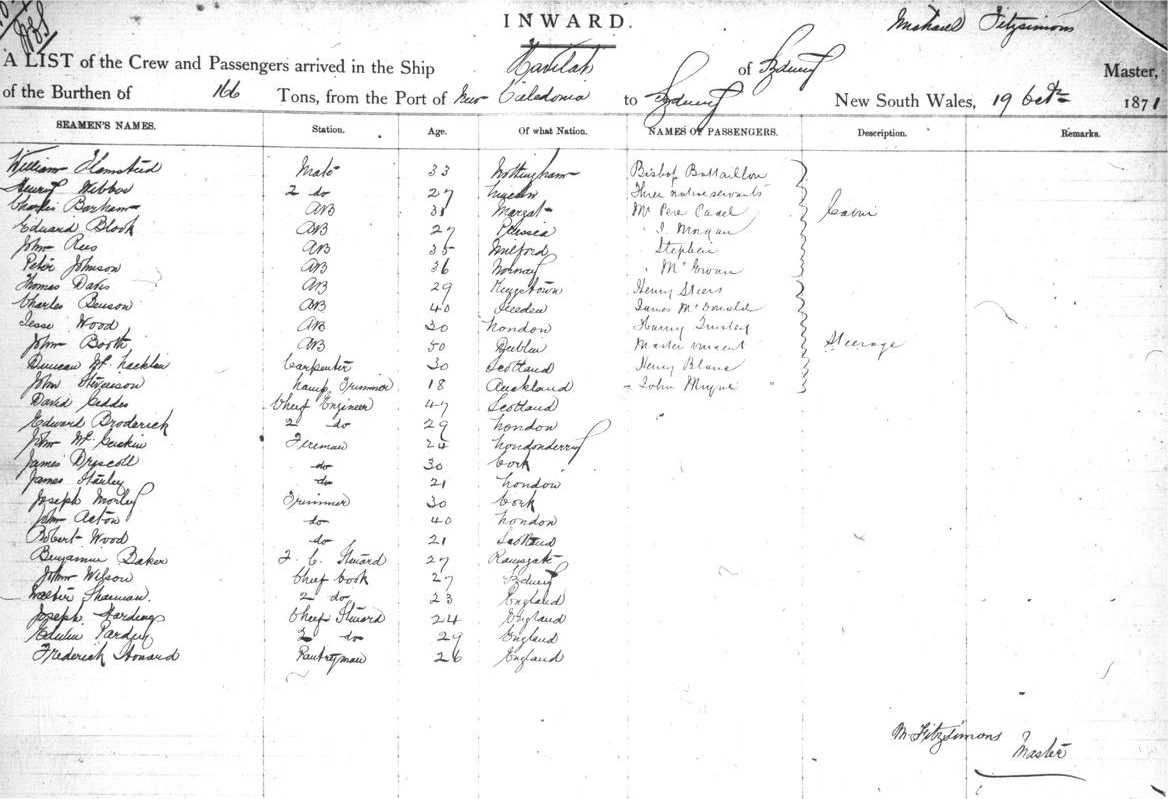 INWARD.
Michael Fitzsimons
A LIST of the Crew and Passengers arrived in the Ship Havilah of Sydney Master,
of the Burthen of 166 Tons, from the Port of New Caledonia to Sydney New South Wales, 19 Octr 1871
SEAMEN'S NAMES. Station. Age. Of what Nation. NAMES OF PASSENGERS. Description. Remarks.
William Olmsted Mate 33 Nottingham Bishop Battaillon
Henry Webber 2 do 27 Three native servants
Charles Barham AB 31 Margate Mr Pere Cabin
Edward Block AB 27 Russia " J. Morgan
John Rees AB 35 Milford Stephen
Peter Johnson AB 36 Norway " McEwan
Thomas Davis AB 29 Kingstown Henry Steers
Charles Benson AB 40 Sweden James McDonald
Jesse Wood AB 30 London Harry
John Booth AB 50 Dublin Master Vincent Steerage
Duncan McLachlan Carpenter 30 Scotland Henry Blanc
John Stevenson Lamp Trimmer 18 Auckland John "
David Geddes Chief Engineer 47 Scotland
Edward Broderick 2 do 29 London
John Fireman 24 Londonderry
James Driscoll do 30 Cork
James Stanley do 21 London
Joseph Morley Trimmer 30 Cork
John Acton do 40 London
Robert Wood do 21 Scotland
Benjamin Baker F. C. Steward 27 Ramsgate
John Wilson Chief Cook 27 Sydney
Walter Sharman 2 do 23 England
Joseph Harding Chief Steward 24 England
Edwin Pardey 2 do 29 England
Frederick Howard Pantryman 26 England
M Fitzsimons
Master